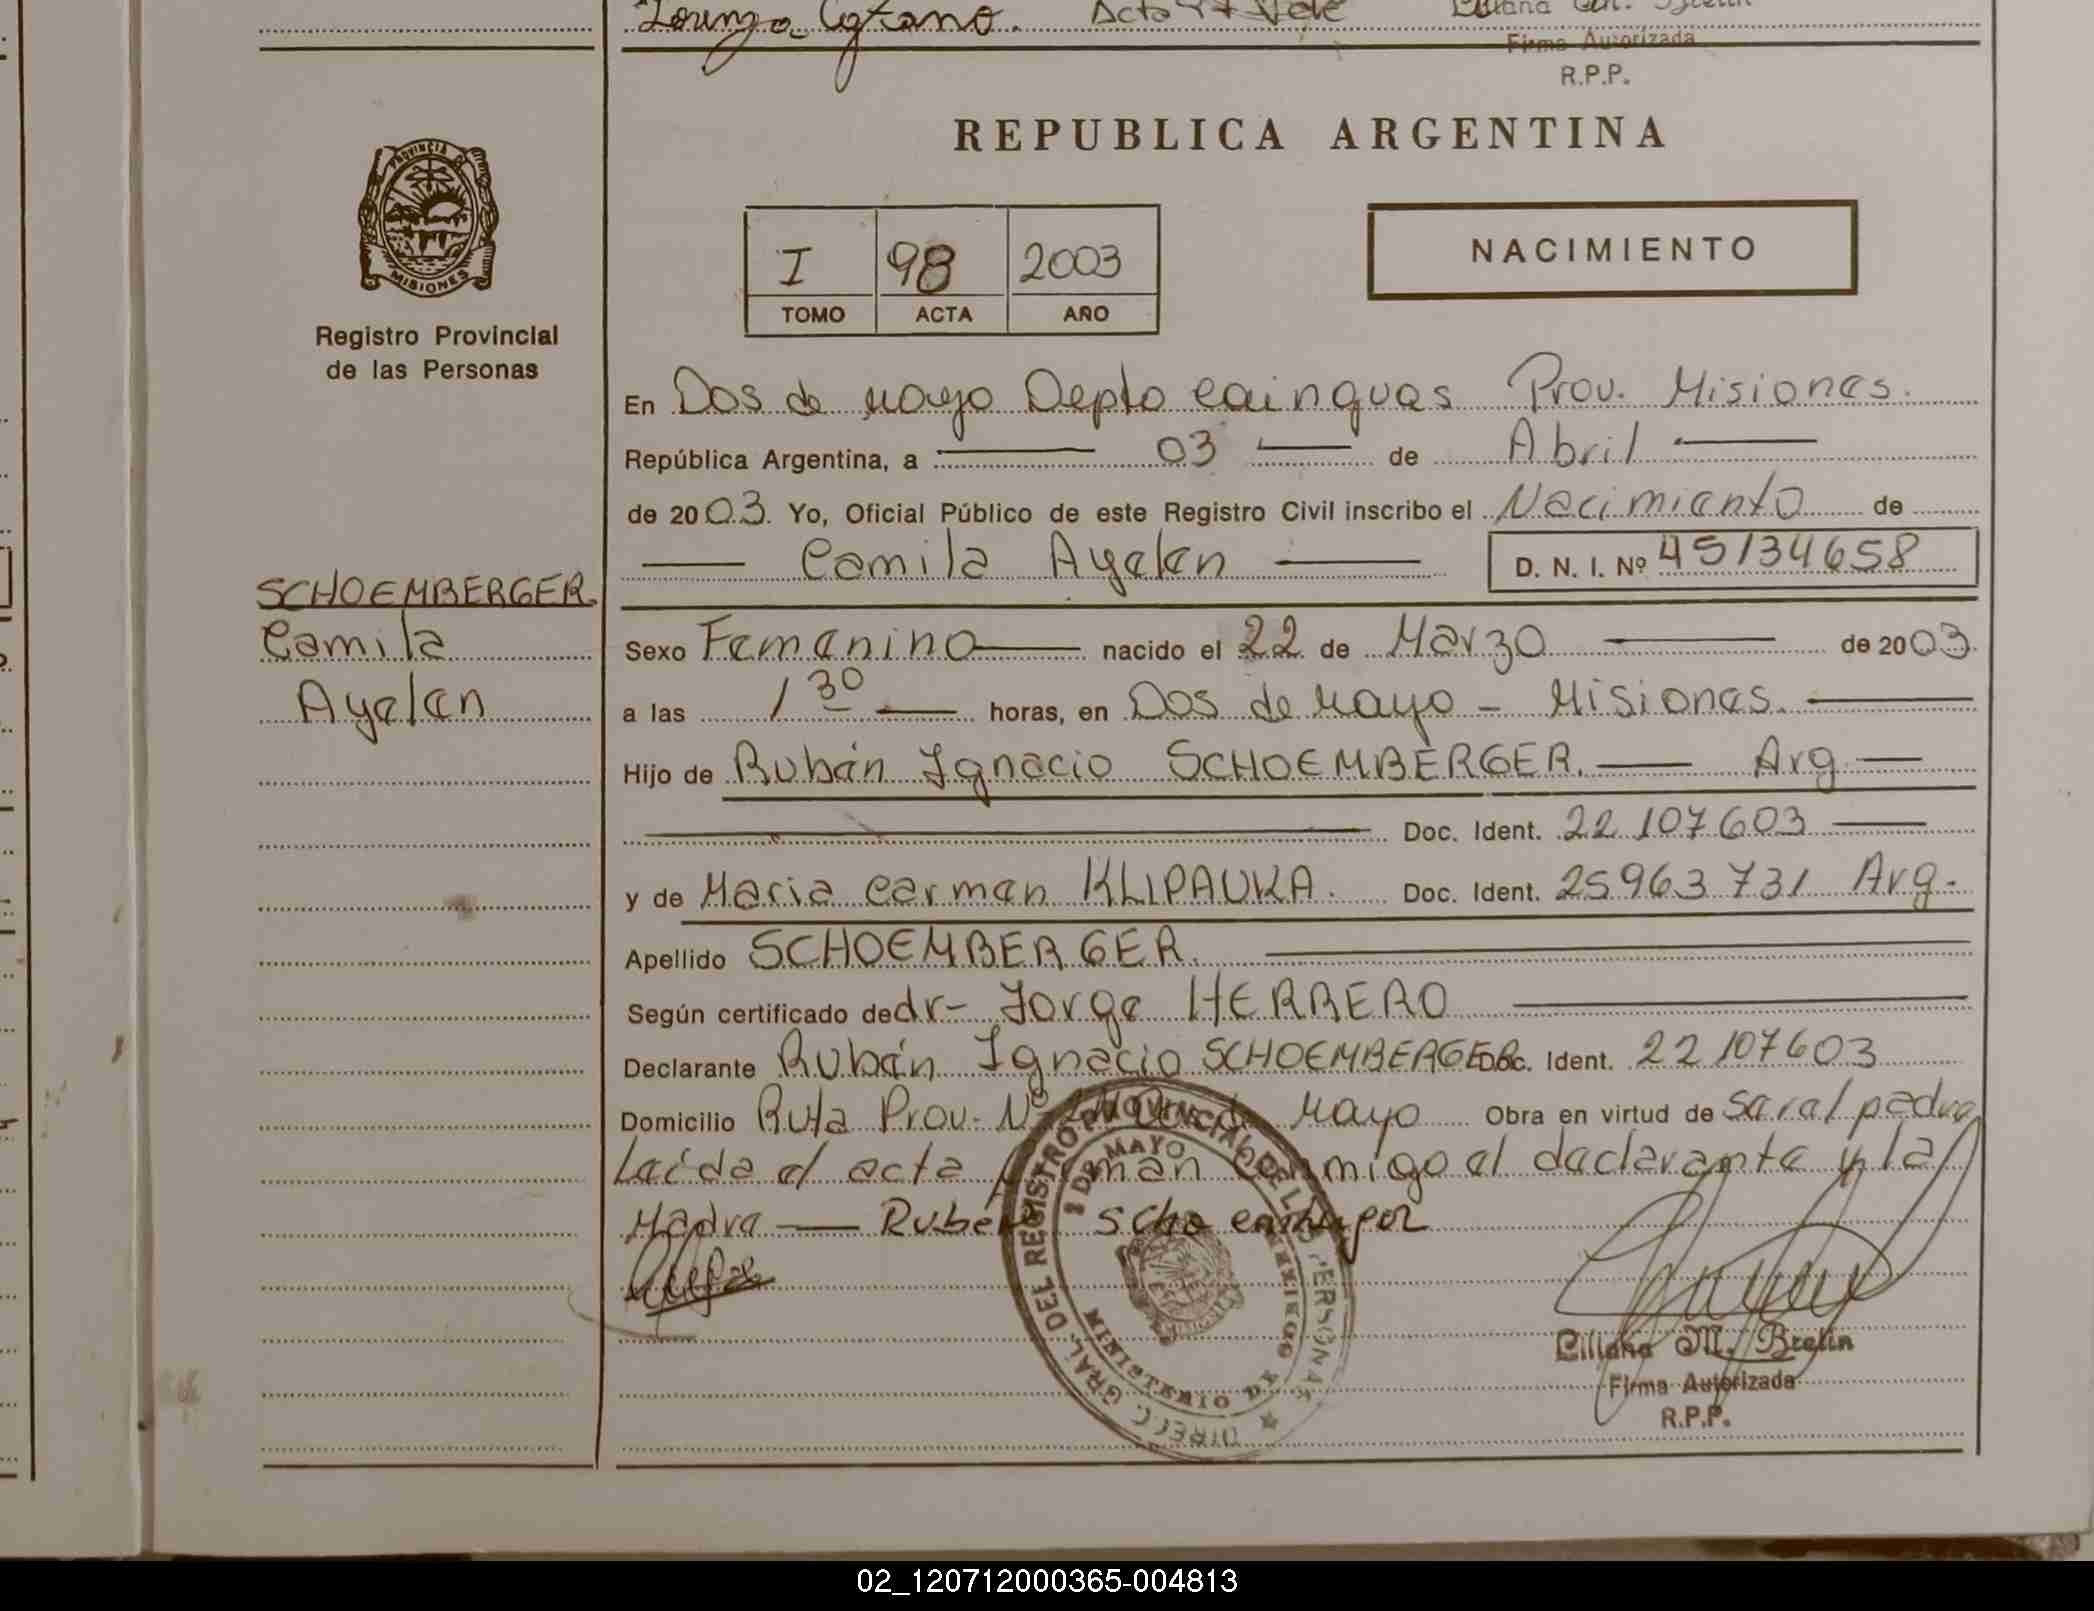 Lorenzo Cytano. Acta 97 Vale
Firma Autorizada
R.P.P.
PROVINCIA DE
MISIONES
Registro Provincial
de las Personas
REPUBLICA ARGENTINA
I 98 2003
TOMO ACTA AÑO
NACIMIENTO
En Dos de Mayo Depto Cainguas Prov. Misiones.
República Argentina, a 03 de Abril
de 2003. Yo, Oficial Público de este Registro Civil inscribo el Nacimiento de
Camila Ayelen D. N. I. Nº 45134658
SCHOEMBERGER
Camila
Ayelen
Sexo Femenino nacido el 22 de Marzo de 2003
a las 1 30 horas, en Dos de Mayo - Misiones.
Hijo de Rubén Ignacio SCHOEMBERGER. Arg
Doc. Ident. 22107603
y de Maria Carmen KLIPAUKA. Doc. Ident. 25963731 Arg.
Apellido SCHOEMBERGER.
Según certificado de dr- Jorge HERRERO
Declarante Rubén Ignacio SCHOEMBERGER Doc. Ident. 22107603
Domicilio Ruta Prov. Nº Mayo Obra en virtud de ser el padre
Leída el acta conmigo el declarante y la
Madre Rubén Schoemberger
DIREC. GRAL. DEL REGISTRO PROVINCIAL DE LAS PERSONAS
2 DE MAYO
MINISTERIO DE
Liliana M. Brelin
Firma Autorizada
R.P.P.
02_120712000365-004813